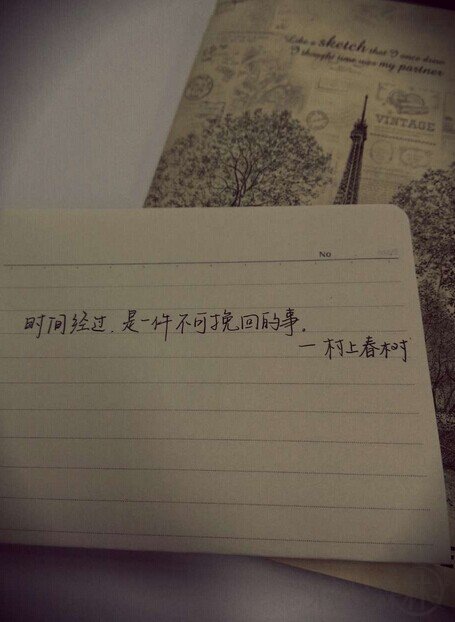 Like a sketch that I once drew
I thought time was my partner
VINTAGE
No
时间经过,是一件不可挽回的事.
—村上春树